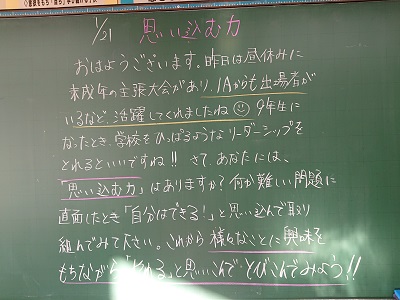 1/21 思い込む力
おはようございます。昨日は昼休みに
未成年の主張大会があり、1Aからも出場者が
いるなど、活躍してくれましたね 9年生に
なったとき、学校をひっぱるようなリーダーシップを
とれるといいですね!! さて、あなたには、
「思い込む力」はありますか?何か難しい問題に
直面したとき「自分はできる!」と思い込んで取り
組んでみて下さい。これから様々なことに興味を
もちながら「やれる」と思いこんでとびこんでみよう!!